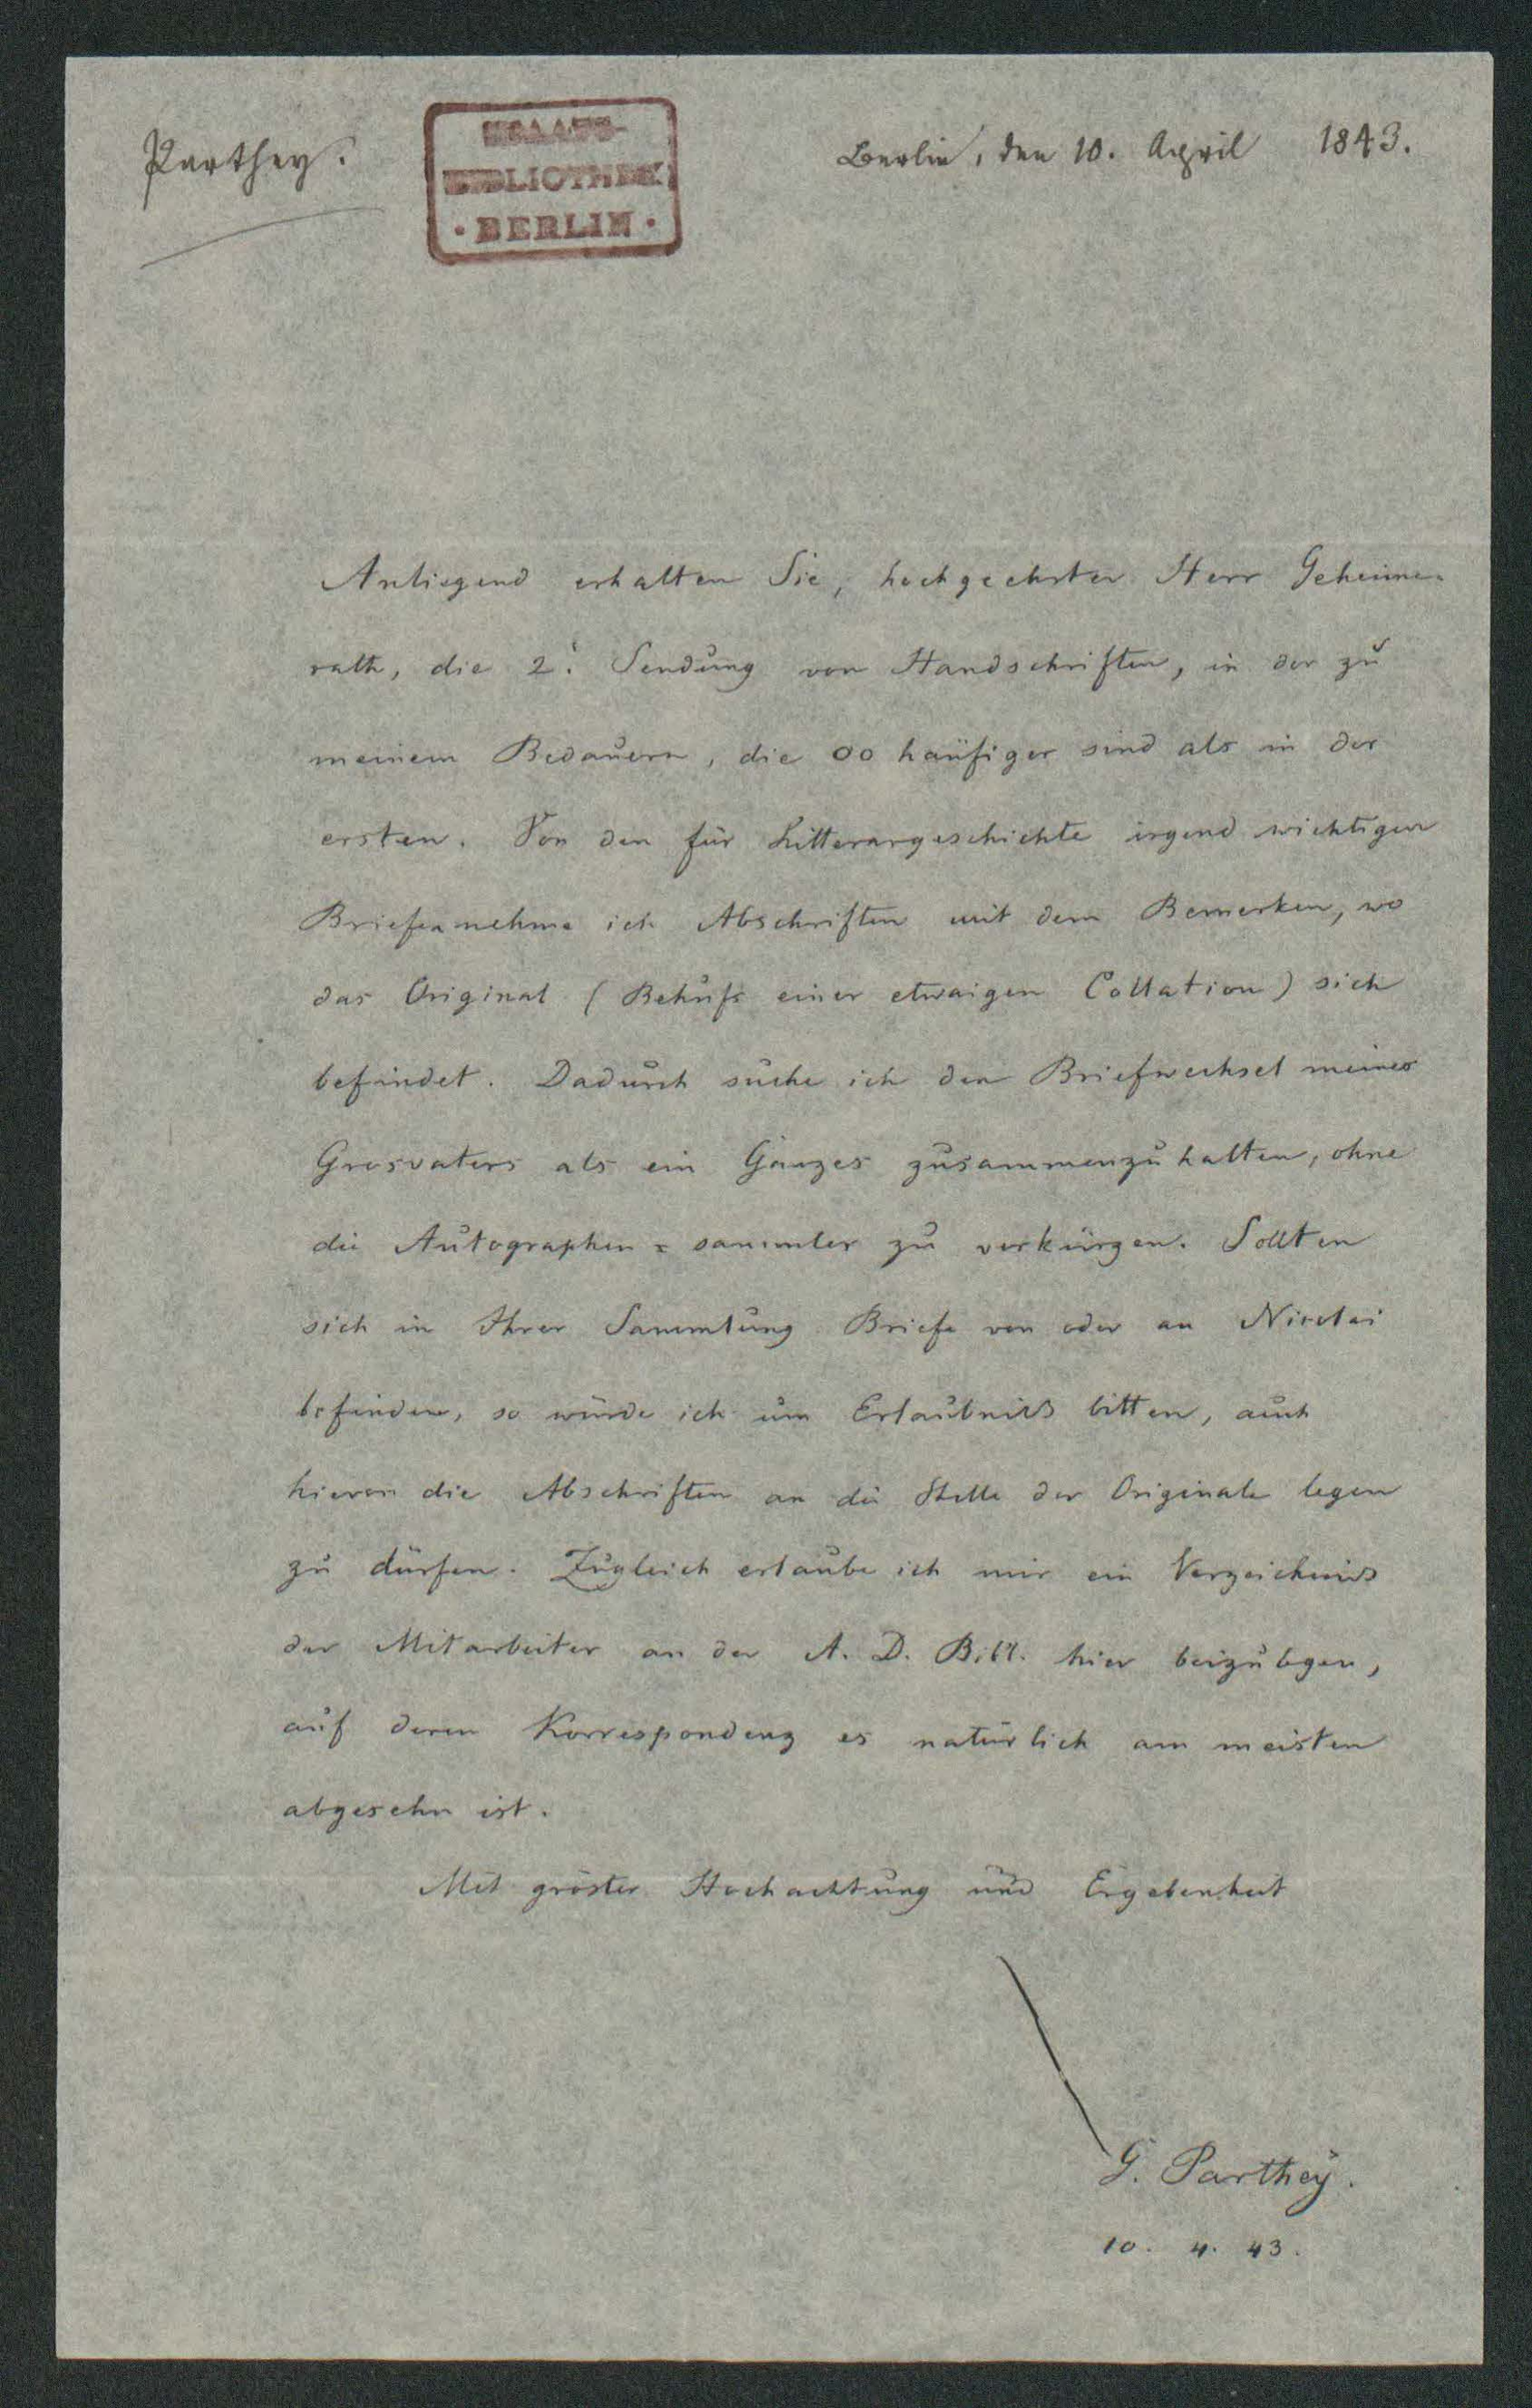 Parthey.
STAATS-
BIBLIOTHEK
· BERLIN ·
Berlin, den 10. April 1843.
Anliegend erhalten Sie, hochgeehrter Herr Geheime-
rath, die 2.' Sendung von Handschriften, in der zu
meinem Bedauern, die 00 haüfiger sind als in der
ersten. Von den für Litterargeschichte irgend wichtigen
Briefen nehme ich Abschriften mit dem Bemerken, wo
das Original (Behufs einer etwaigen Collation) sich
befindet. Dadurch suche ich den Briefwechsel meines
Grosvaters als ein Ganzes zusammenzuhalten, ohne
die Autographen=sammler zu verkürzen. Sollten
sich in Ihrer Sammlung Briefe von oder an Nicolai
befinden, so würde ich um Erlaubniss bitten, auch
hievon die Abschriften an die Stelle der Originale legen
zu dürfen. Zugleich erlaube ich mir ein Verzeichniss
der Mitarbeiter an der A. D. Bibl. hier beizulegen,
auf deren Korrespondenz es natürlich am meisten
abgesehn ist.
Mit gröster Hochachtung und Ergebenheit
G. Parthey.
10. 4. 43.